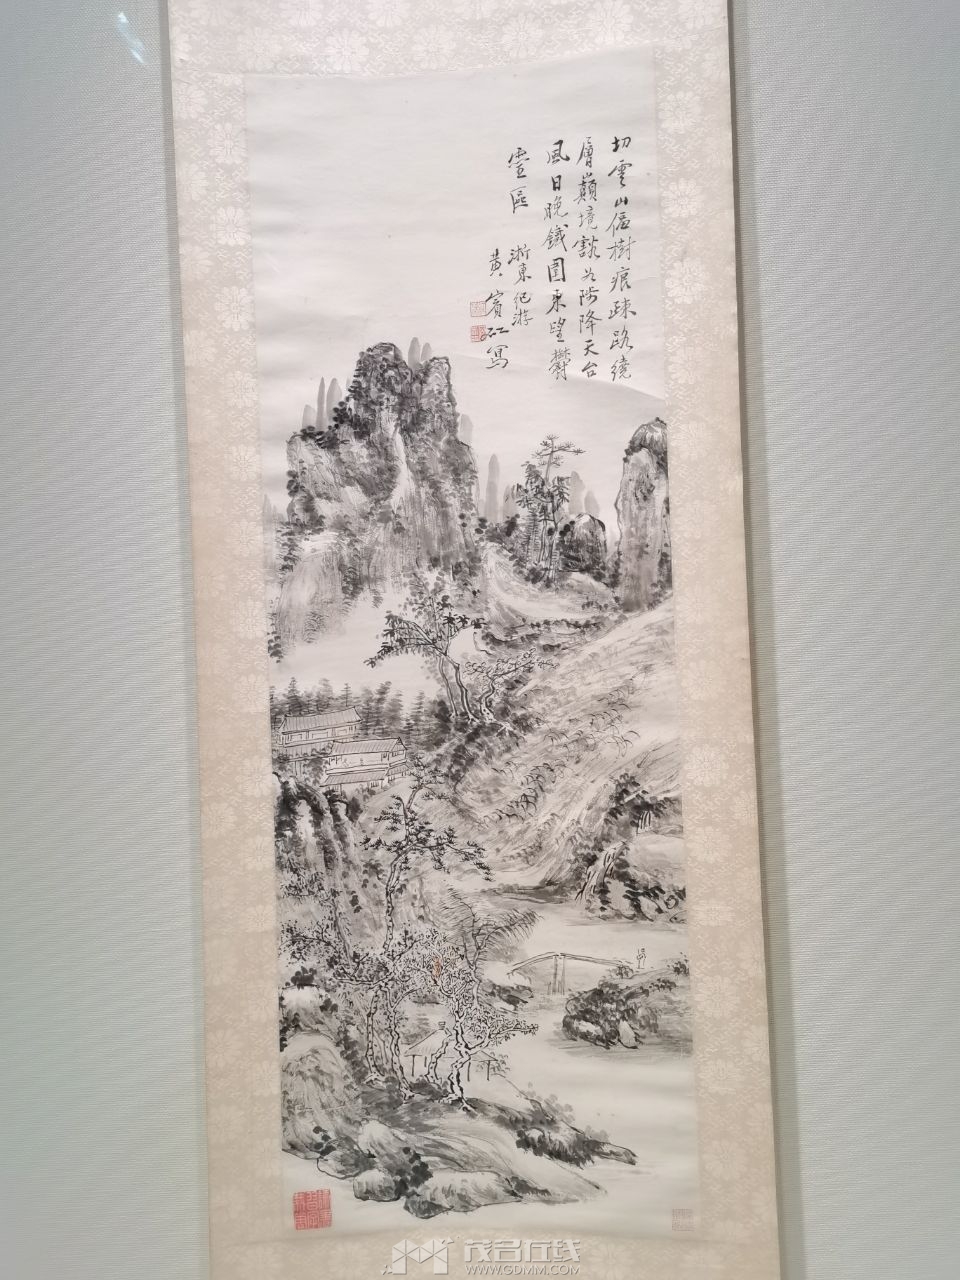 切雲山傴樹痕疎路繞
層巔境豁為陟降天台
風日晚鐵圍東望鬱
靈區
浙東紀游
黄賓虹寫
茂名在线
WWW.GDMM.COM